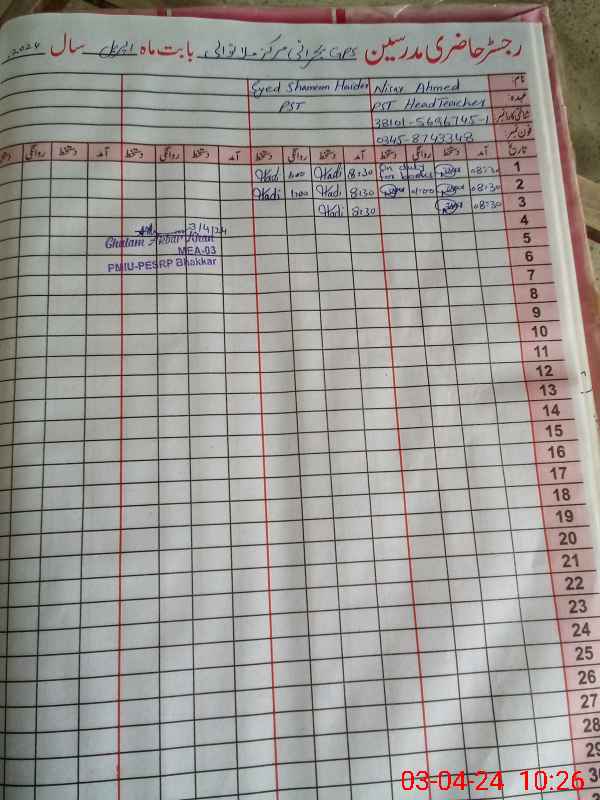 رجسٹر حاضری مدرسین GPS بحرانی مرکز ملانوالی بابت ماہ اپریل سال 2024
نام: Nisar Ahmed Syed Shameem Haider
عہدہ: PST Head Teacher PST
شناختی کارڈ نمبر 38101-5696745-1
فون نمبر: 0345-8743348
تاریخ آمد دستخط روانگی دستخط آمد دستخط روانگی دستخط آمد دستخط روانگی دستخط آمد دستخط روانگی دستخط
1 08:30 On duty 8:30 Hadi 1:00 Hadi
2 08:30 01:00 8:30 Hadi 1:00 Hadi
3 08:30 8:30 Hadi
4
3/4/24
5
Ghulam Akbar Khan
MEA-03
6
PMIU-PESRP Bhakkar
7
8
9
10
11
12
13
14
15
16
17
18
19
20
21
22
23
24
25
26
27
28
29
30
03-04-24 10:26